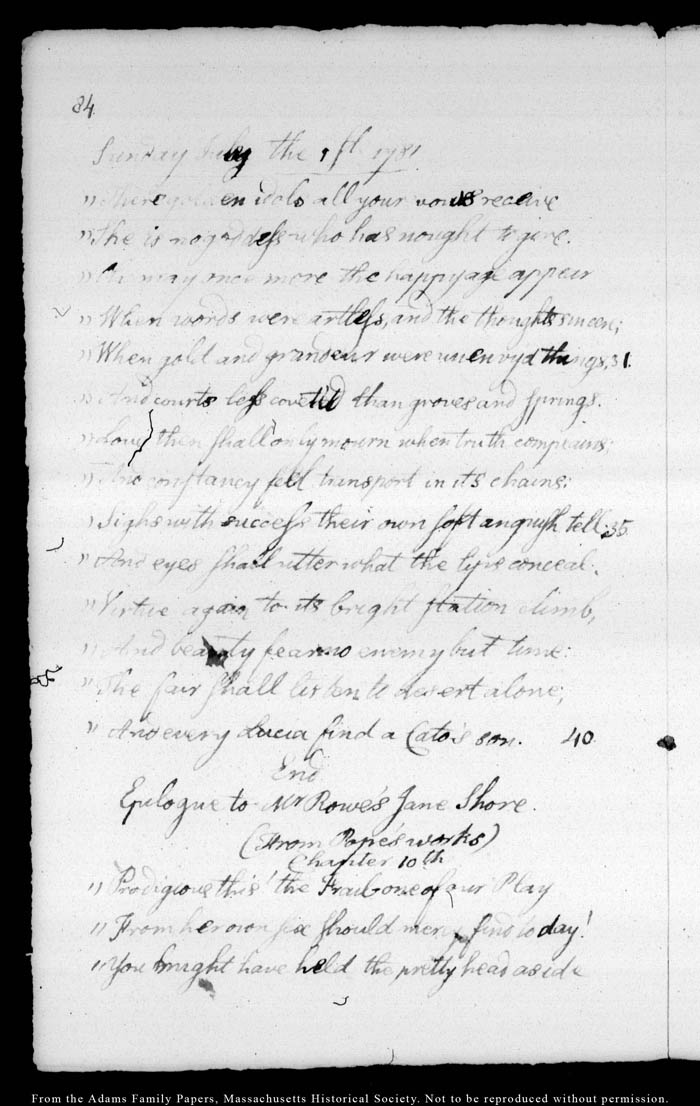 84
Sunday July the 1st 1781
" There golden idols all your vows receive
" She is no goddess who has nought to give.
" Oh may once more the happy age appear
" When words were artless, and the thoughts sincere;
" When gold and grandeur were unenvy'd things, 31.
" And courts less coveted than groves and springs.
" Love then shall only mourn when truth complains;
" And constancy feel transport in it's chains:
" Sighs with success their own soft anguish tell; 35.
" And eyes shall utter what the lips conceal.
" Virtue again to its bright station climb,
" And beauty fear no enemy but time:
" The fair shall listen to desert alone;
" And every Lucia find a Cato's son. 40
End
Epilogue to Mr Rowe's Jane Shore.
(From Pope's works)
Chapter 10th
" Prodigious this! the Frail one of our Play
" From her own sex should mercy find to day!
" You might have held the pretty head aside
From the Adams Family Papers, Massachusetts Historical Society. Not to be reproduced without permission.